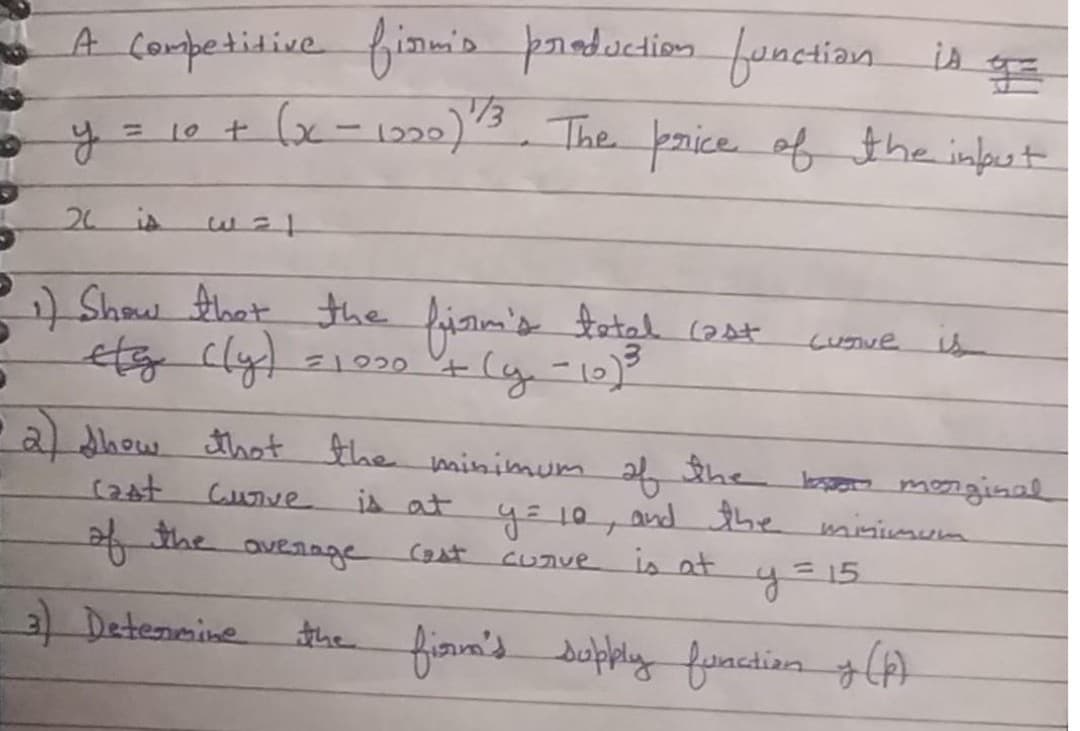 A Competitive firm's production function is y=
y = 10 + (x - 1000)^1/3. The price of the input
x is w = 1
1) Show that the firm's total cost curve is
c(y) = 1000 + (y - 10)^3
2) Show that the minimum of the marginal
cost curve is at y = 10, and the minimum
of the average cost curve is at y = 15
3) Determine the firm's supply function y(p)